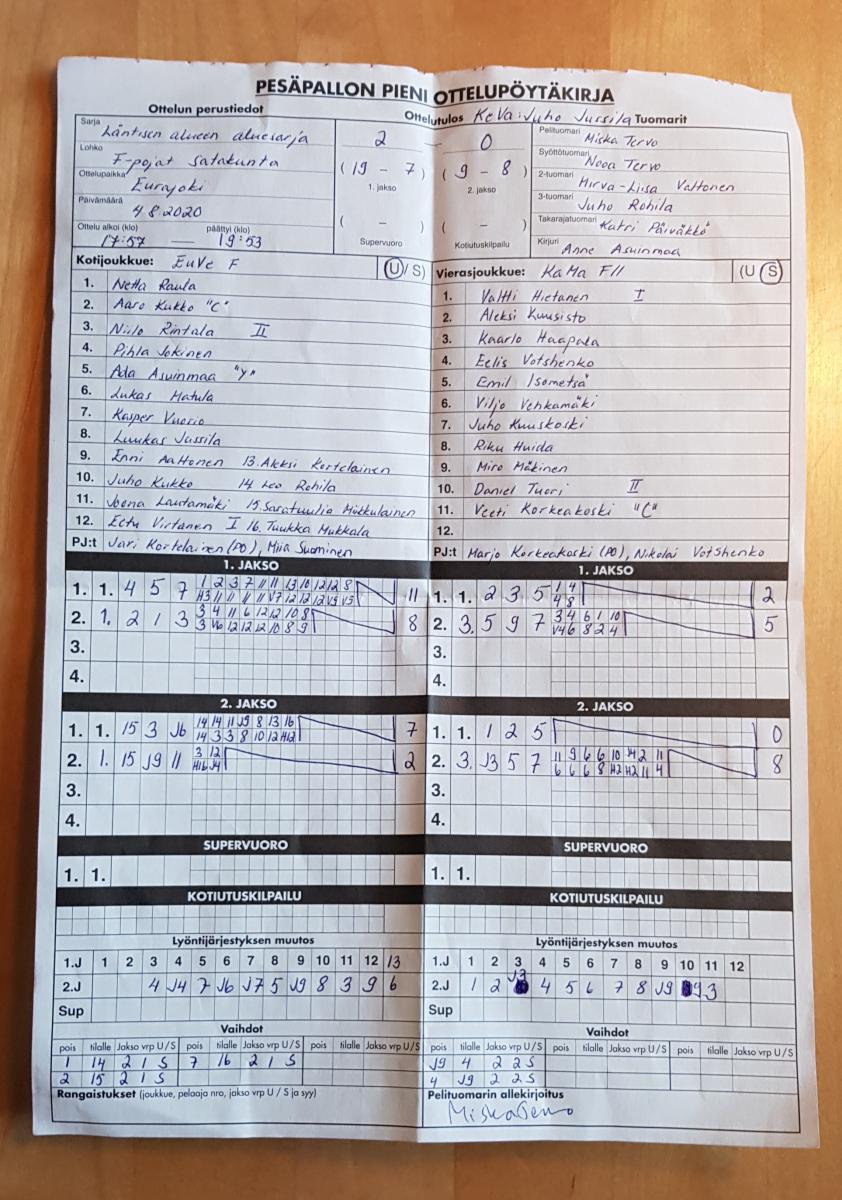 PESÄPALLON PIENI OTTELUPÖYTÄKIRJA
Ottelun perustiedot
Ottelutulos KeVa: Juho Jussila Tuomarit
Sarja Läntisen alueen aluesarja
Lohko F-pojat Satakunta
Ottelupaikka Eurajoki
Päivämäärä 4.8.2020
Ottelu alkoi (klo) päättyi (klo)
17:57 — 19:53
2 — 0
( 19 - 7 ) ( 9 - 8 )
1. jakso 2. jakso
( - ) ( - )
Supervuoro Kotiutuskilpailu
Pelituomari Miska Tervo
Syöttötuomari Nooa Tervo
2-tuomari Mirva-Liisa Valtonen
3-tuomari Juho Rohila
Takarajatuomari Katri Päiväkkö
Kirjuri Anne Asuinmaa
Kotijoukkue: EuVe F (U/ S)
1. Netta Raula
2. Aaro Kukko "C"
3. Niilo Rintala II
4. Pihla Jokinen
5. Ada Asuinmaa "Y"
6. Lukas Matula
7. Kasper Vuorio
8. Luukas Jussila
9. Enni Aaltonen 13. Aleksi Kortelainen
10. Juho Kukko 14 Leo Rohila
11. Joona Lautamäki 15. Saratuulia Mökkulainen
12. Eetu Virtanen I 16. Tuukka Mukkala
PJ:t Jari Kortelainen (PO), Miia Suominen
Vierasjoukkue: KaMa F// (U S)
1. Valtti Hietanen I
2. Aleksi Kuusisto
3. Kaarlo Haapala
4. Eelis Votshenko
5. Emil Isometsä
6. Viljo Vehkamäki
7. Juho Kuuskoski
8. Riku Huida
9. Miro Mäkinen
10. Daniel Tuori II
11. Veeti Korkeakoski "C"
12.
PJ:t Marjo Korkeakoski (PO), Nikolai Votshenko
1. JAKSO
1. 1. 4 5 7 1 2 3 7 11 11 13 10 12 12 8 11
2. 1. 2 1 3 3 4 11 6 12 12 10 8 8
3 V6 12 12 12 10 8 9
3.
4.
1. JAKSO
1. 1. 2 3 5 1 4 2
4 8
2. 3. 5 9 7 3 4 6 1 10 5
V4 6 8 2 4
3.
4.
2. JAKSO
1. 1. 15 3 J6 14 14 11 J9 8 13 16 7
14 3 3 8 10 12 H12
2. 1. 15 J9 11 3 12 2
H16 J4
3.
4.
2. JAKSO
1. 1. 1 2 5 0
2. 3. J3 5 7 11 9 6 6 10 J4 2 11 8
6 6 6 8 H2 H2 11 4
3.
4.
SUPERVUORO
1. 1.
SUPERVUORO
1. 1.
KOTIUTUSKILPAILU
KOTIUTUSKILPAILU
Lyöntijärjestyksen muutos
1.J 1 2 3 4 5 6 7 8 9 10 11 12 13
2.J 4 J4 7 J6 J7 5 J9 8 3 9 6
Sup
Lyöntijärjestyksen muutos
1.J 1 2 3 4 5 6 7 8 9 10 11 12
2.J 1 2 J3 4 5 6 7 8 J9 3
Sup
Vaihdot
pois tilalle Jakso vrp U/S pois tilalle Jakso vrp U/S pois tilalle Jakso vrp U/S
1 14 2 1 S 7 16 2 1 S
2 15 2 1 S
Vaihdot
pois tilalle Jakso vrp U/S pois tilalle Jakso vrp U/S pois tilalle Jakso vrp U/S
J9 4 2 2 S
4 J9 2 2 S
Rangaistukset (joukkue, pelaaja nro, jakso vrp U / S ja syy)
Pelituomarin allekirjoitus
Miska Tervo